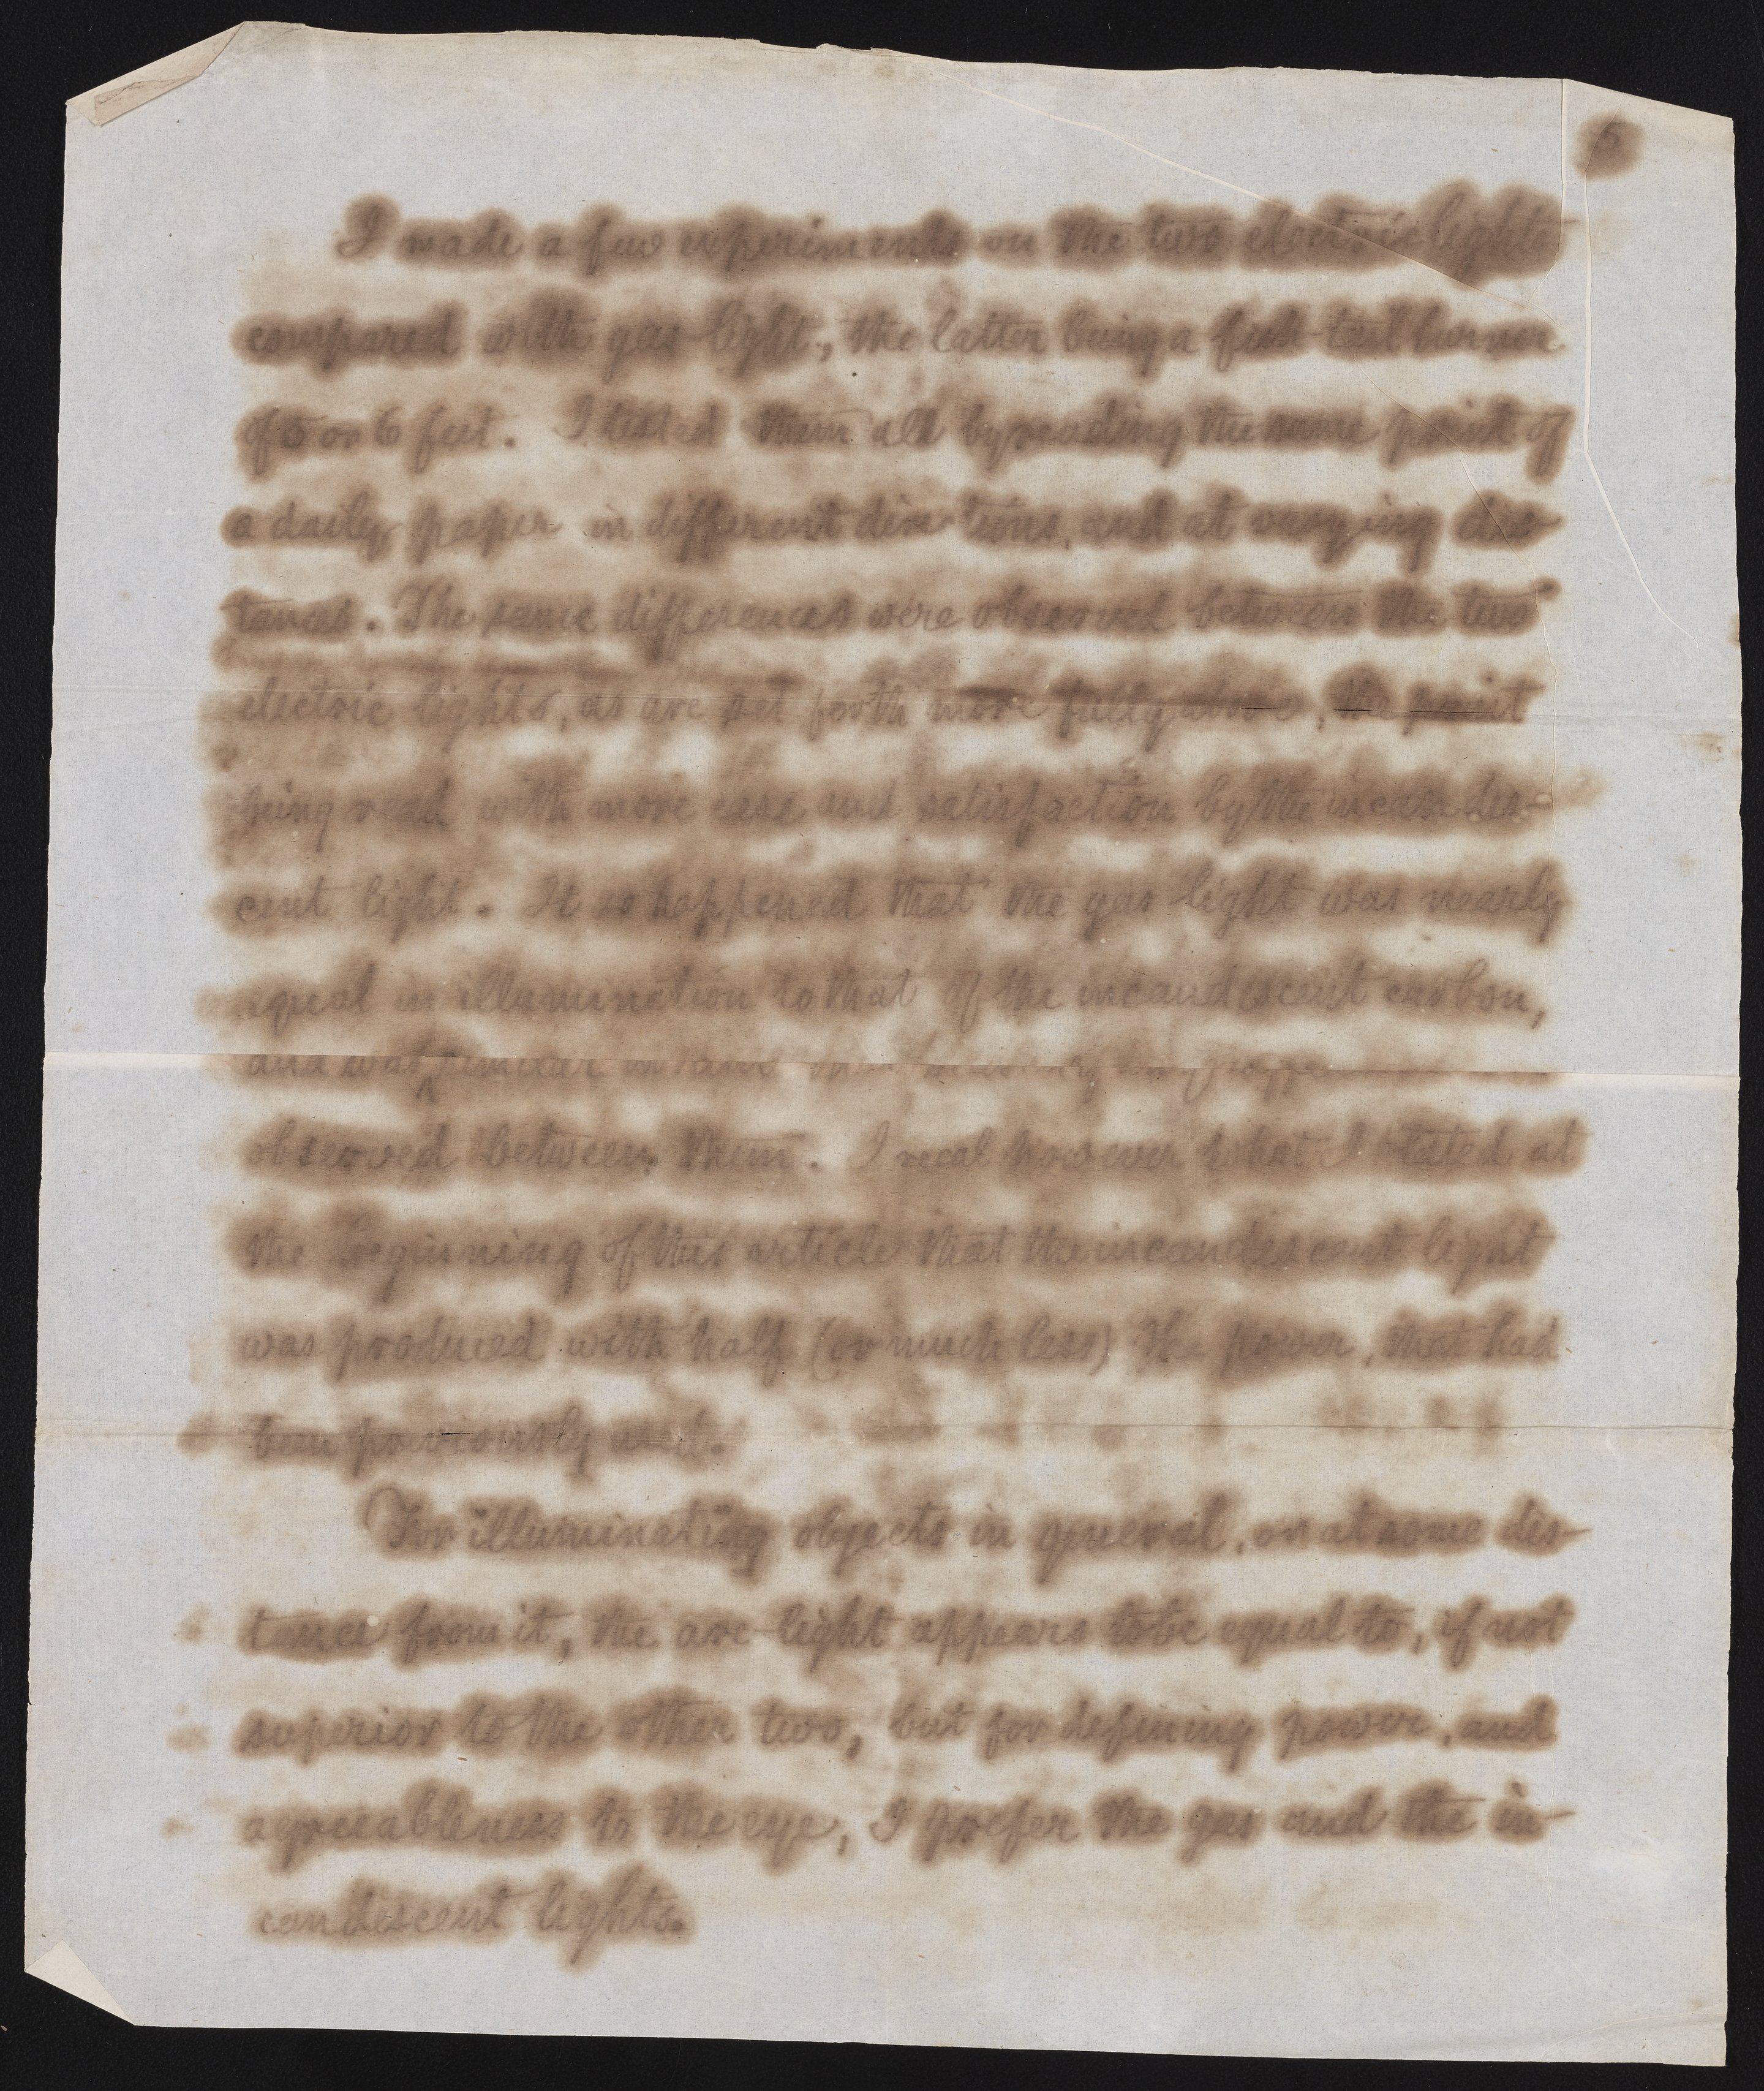 5
I made a few experiments on the two electric lights
compared with gas-light, the latter being a fish-tail burner
of 5 or 6 feet. I tested them all by reading the same print of
a daily paper in different directions, and at varying dis-
tances. The same differences were observed between the two
electric lights, as are set forth more fully above, the print
being read with more ease and satisfaction by the incandes-
cent light. It so happened that the gas light was nearly
equal in illumination to that of the incandescent carbon,
and was similar in
observed between them. I recal however what I stated at
the beginning of this article that the incandescent light
was produced with half (or much less) the power, that had
been previously used.
For illuminating objects in general, or at some dis-
tance from it, the arc-light appears to be equal to, if not
superior to the other two, but for defining power, and
agreeableness to the eye, I prefer the gas and the in-
candescent lights.